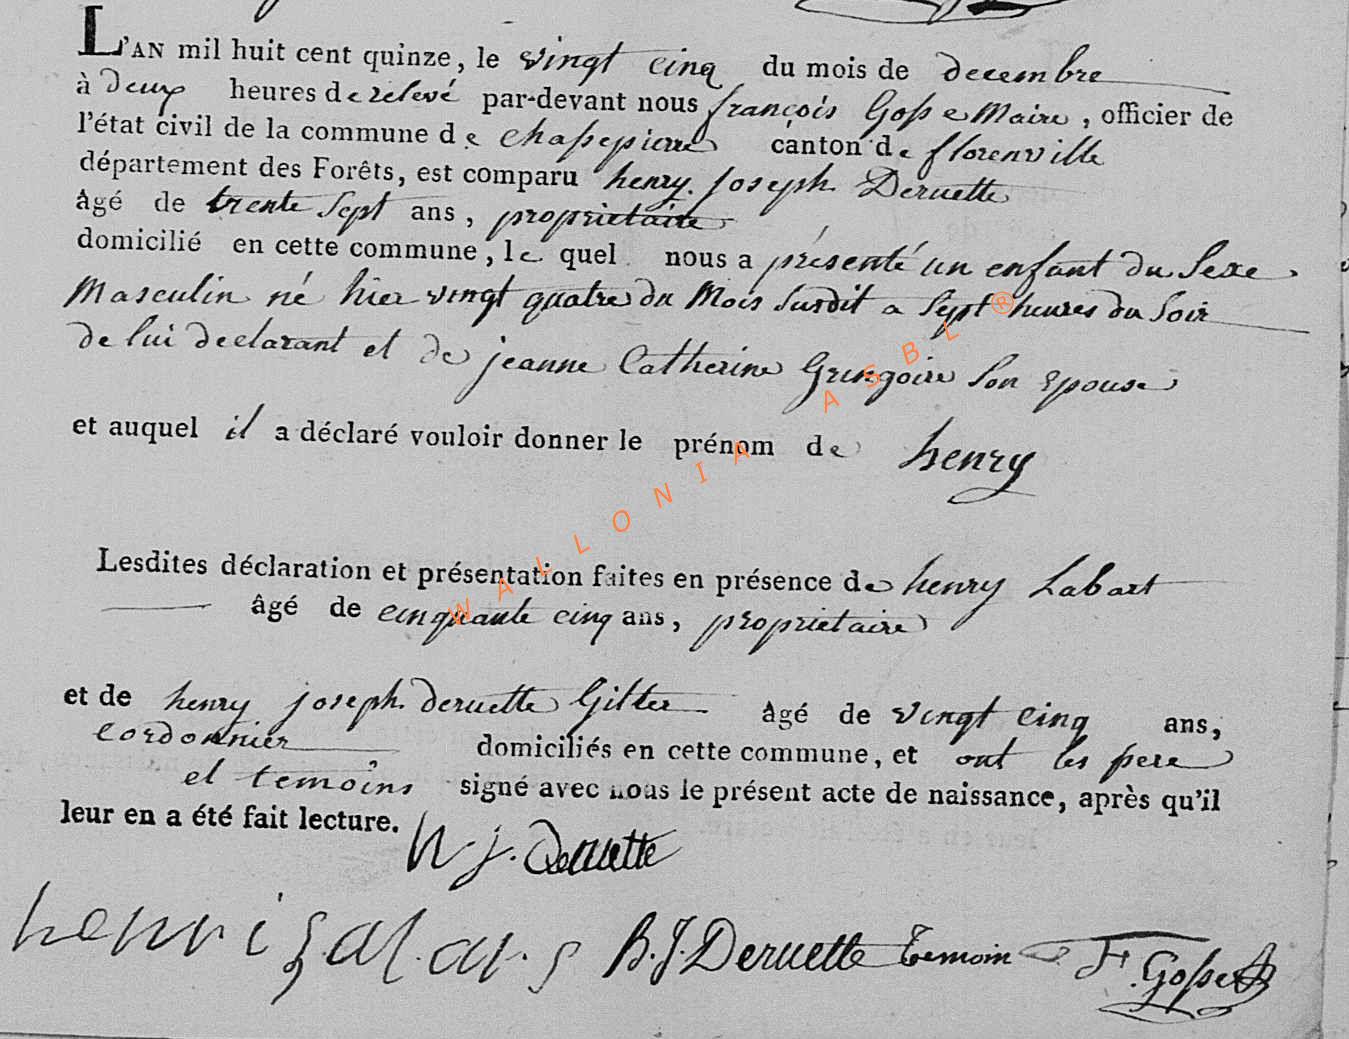 L'AN mil huit cent quinze, le vingt cinq du mois de decembre
à deux heures de relevé par-devant nous françois Gosse Maire, officier de
l'état civil de la commune de chassepierre canton de florenville
département des Forêts, est comparu henry joseph Deruette
âgé de trente sept ans, proprietaire
domicilié en cette commune, le quel nous a présenté un enfant du Sexe
Masculin né hier vingt quatre du Mois Susdit a Sept heures du Soir
de lui declarant et de jeanne Catherine Gringoire Son epouse
et auquel il a déclaré vouloir donner le prénom de henry
WALLONIA ASBL ®
Lesdites déclaration et présentation faites en présence de henry Labart
âgé de cinquante cinq ans, proprietaire
et de henry joseph deruette Gilter âgé de vingt cinq ans,
cordonnier domiciliés en cette commune, et ont les pere
et temoins signé avec nous le présent acte de naissance, après qu'il
leur en a été fait lecture. h. j. Deruette
henri H. J. Deruette temoin F. Gosse